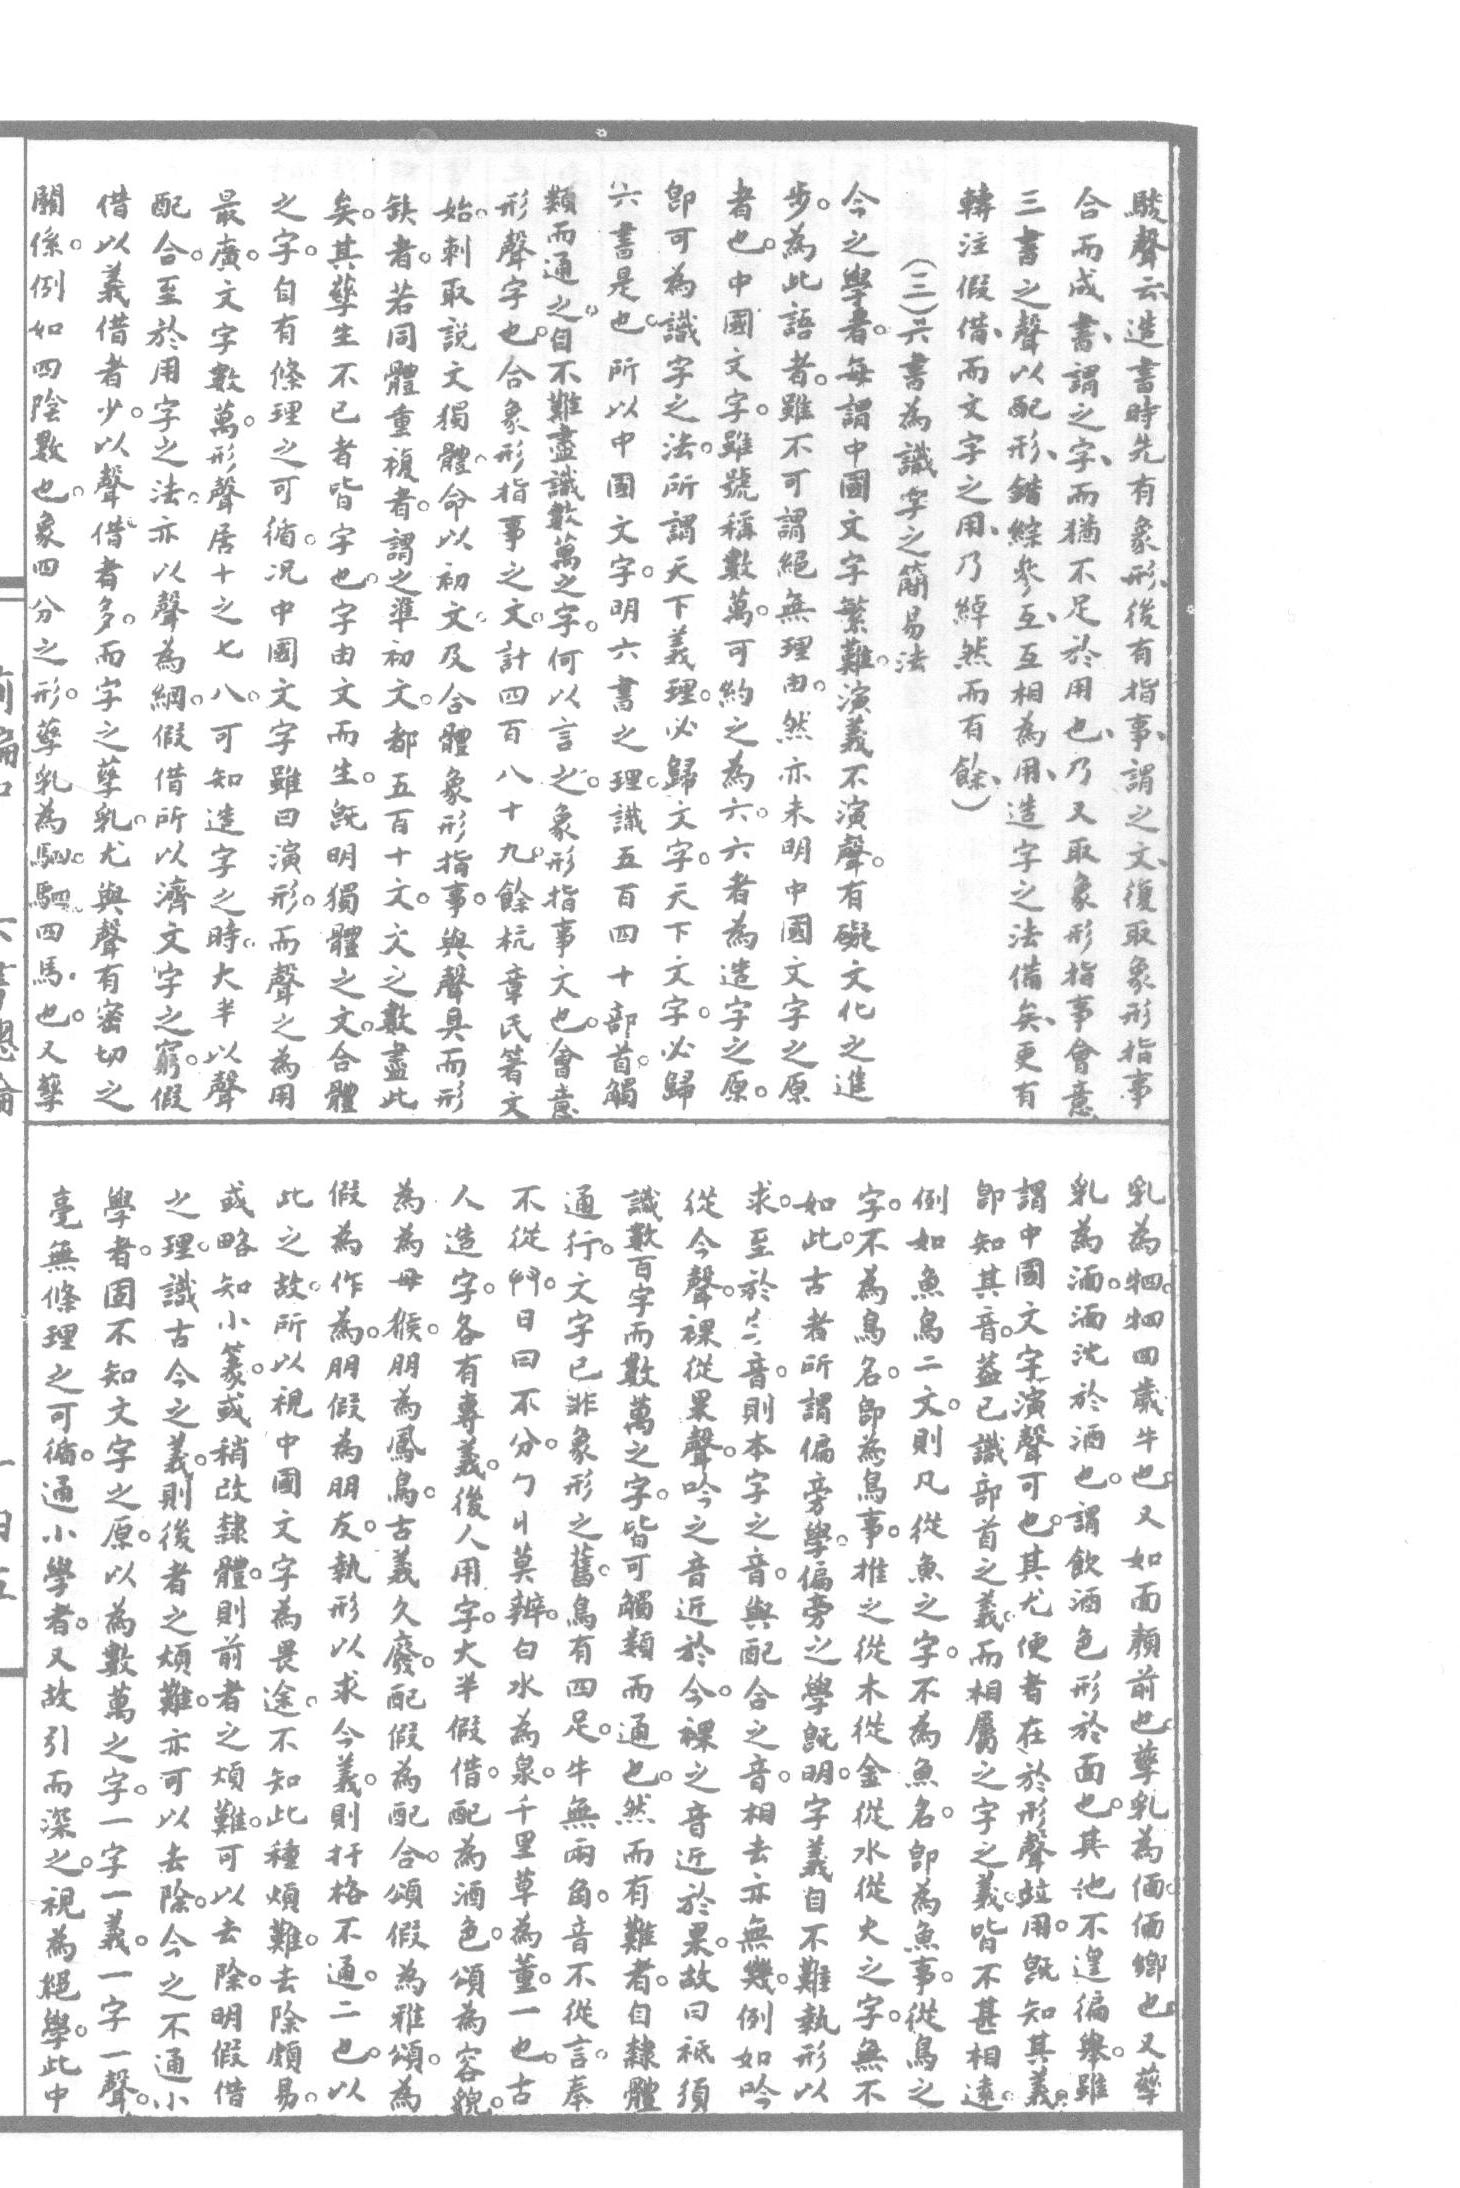 駿聲云、造書時先有象形、後有指事、謂之文、復取象形指事
合而成書、謂之字、而猶不足於用也、乃又取象形指事會意
三書之聲以配形、錯綜參互、互相為用、造字之法備矣、更有
轉注假借、而文字之用、乃綽然而有餘、）
（三）六書為識字之簡易法
今之學者。每謂中國文字繁難。演義不演聲。有礙文化之進
步。為此語者。雖不可謂絕無理由。然亦未明中國文字之原
者也。中國文字。雖號稱數萬。可約之為六。六者為造字之原。
卽可為識字之法。所謂天下義理。必歸文字。天下文字。必歸
六書是也。所以中國文字。明六書之理。識五百四十部首。觸
類而通之。自不難盡識數萬之字。何以言之。象形指事文也。會意
形聲字也。合象形指事之文。計四百八十九。餘杭章氏箸文
始。刺取說文獨體。命以初文。及合體象形指事。與聲具而形
缺者。若同體重複者。謂之準初文。都五百十文。文之數盡此
矣。其孳生不已者皆字也。字由文而生。旣明獨體之文。合體
之字。自有條理之可循。况中國文字雖曰演形。而聲之為用
最廣。文字數萬。形聲居十之七八。可知造字之時。大半以聲
配合。至於用字之法。亦以聲為綱。假借所以濟文字之窮。假
借以義借者少。以聲借者多。而字之孳乳。尤與聲有密切之
關係。例如四陰數也。象四分之形。孳乳為駟。駟四馬也。又孳
乳為牭。牭四歲牛也。又如面顏前也。孳乳為偭。偭鄉也。又孳
乳為湎。湎沈於酒也。謂飲酒色形於面也。其他不遑徧舉。雖
謂中國文字演聲可也。其尤便者在於形聲竝用。旣知其義。
卽知其音。蓋已識部首之義。而相屬之字之義。皆不甚相遠。
例如魚鳥二文。則凡從魚之字。不為魚名。卽為魚事。從鳥之
字。不為鳥名。卽為鳥事。推之從木從金從水從火之字。無不
如此。古者所謂偏旁學。偏旁之學旣明。字義自不難執形以
求。至於音。則本字之音。與配合之音。相去亦無幾。例如吟
從今聲。裸從果聲。吟之音近於今。裸之音近於果。故曰祗須
識數百字而數萬之字。皆可觸類而通也。然而有難者。自隸體
通行。文字已非象形之舊。鳥有四足。牛無兩角。音不從言。奉
不從𠬞。日曰不分。勹丩莫辨。白水為泉。千里草為董。一也。古
人造字。各有專義。後人用字。大半假借。配為酒色。頌為容貌。
為為母猴。朋為鳳鳥。古義久廢。配假為配合。頌假為雅頌。為
假為作為。朋假為朋友。執形以求今義。則扞格不通。二也。以
此之故。所以視中國文字為畏途。不知此種煩難。去除頗易。
或略知小篆。或稍改隸體。則前者之煩難。可以去除。明假借
之理。識古今之義。則後者之煩難。亦可以去除。今之不通小
學者。固不知文字之原。以為數萬之字。一字一義。一字一聲。
毫無條理之可循。通小學者。又故引而深之。視為絕學。此中